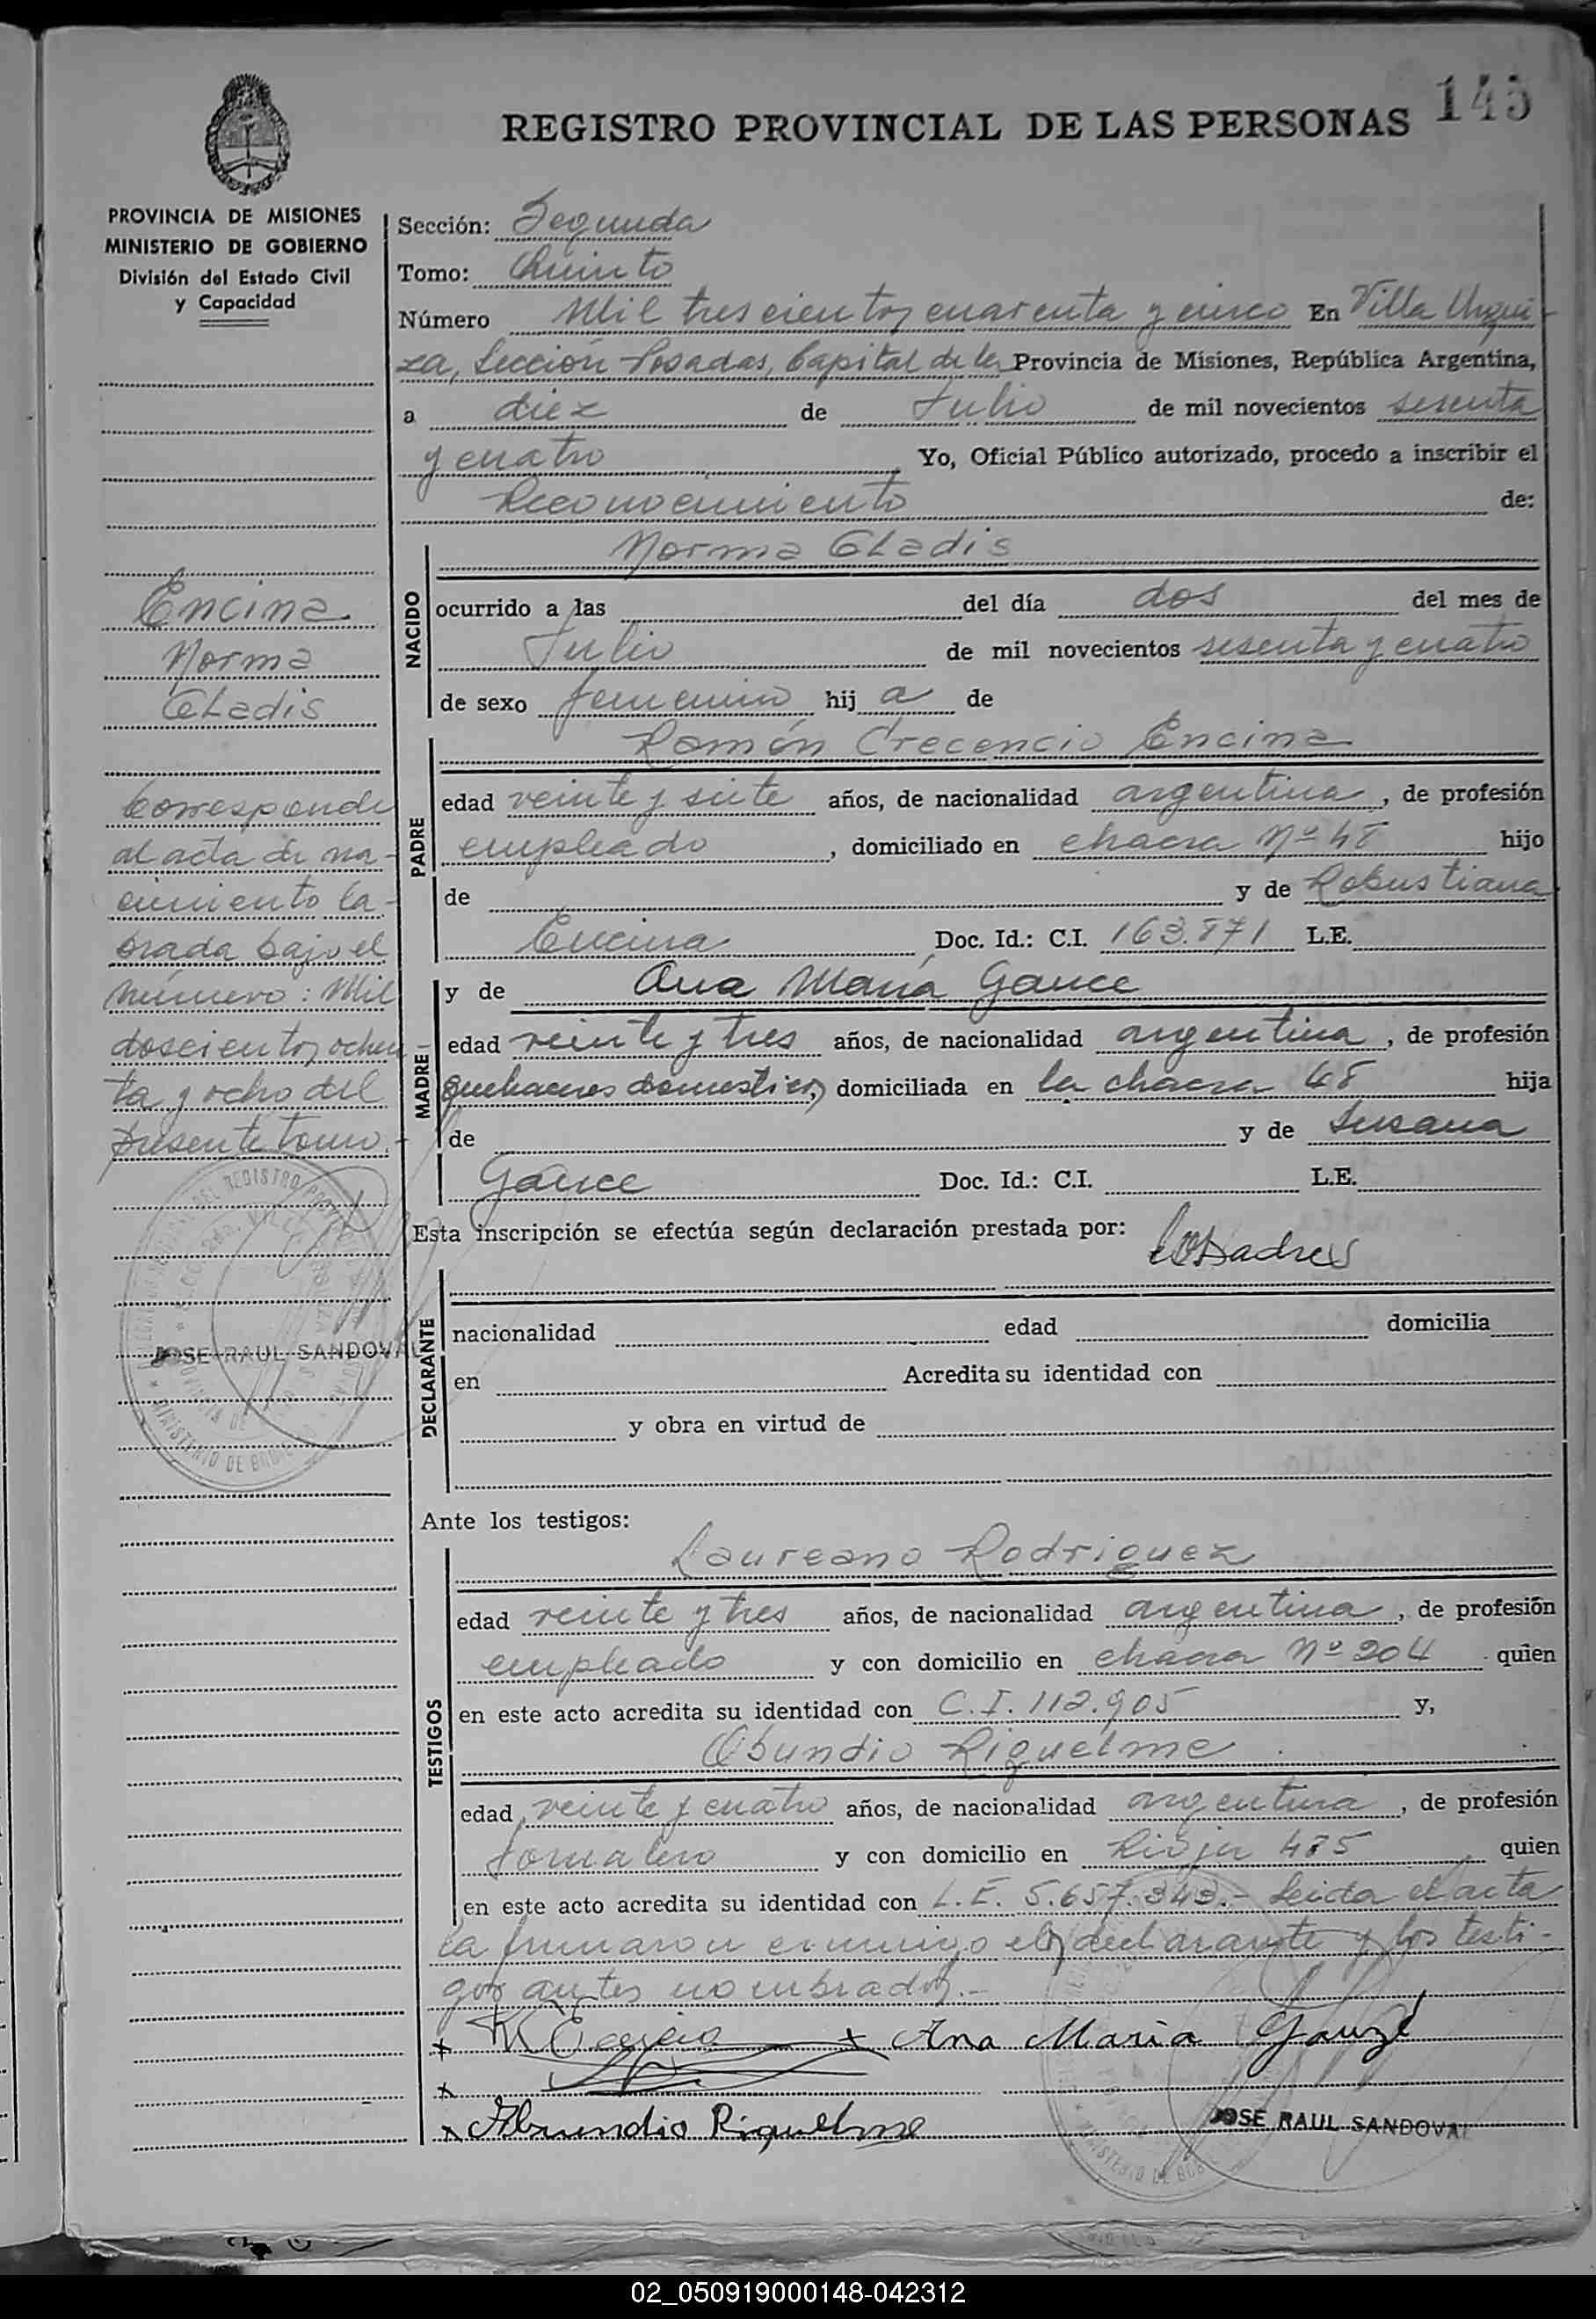 REGISTRO PROVINCIAL DE LAS PERSONAS 145
PROVINCIA DE MISIONES
MINISTERIO DE GOBIERNO
División del Estado Civil
y Capacidad
Encina
Norma
Gladis
Corresponde
al acta de na-
cimiento la-
brada bajo el
número: Mil
doscientos ochen-
ta y ocho del
presente tomo.-
JOSE RAUL SANDOVAL
Sección: Segunda
Tomo: Quinto
Número Mil trescientos cuarenta y cinco En Villa Urqui-
za, Sección Posadas, Capital de la Provincia de Misiones, República Argentina,
a diez de Julio de mil novecientos sesenta
y cuatro Yo, Oficial Público autorizado, procedo a inscribir el
Reconocimiento de:
Norma Gladis
NACIDO
ocurrido a las del día dos del mes de
Julio de mil novecientos sesenta y cuatro
de sexo femenino hij a de
Ramón Crecencio Encina
PADRE
edad veinte y siete años, de nacionalidad argentina, de profesión
empleado, domiciliado en chacra Nº 48 hijo
de y de Robustiana
Encina Doc. Id.: C.I. 163.871 L.E.
MADRE
y de Ana María Gauce
edad veinte y tres años, de nacionalidad argentina, de profesión
quehaceres domesticos, domiciliada en la chacra 48 hija
de y de Susana
Gauce Doc. Id.: C.I. L.E.
Esta inscripción se efectúa según declaración prestada por: los Padres
DECLARANTE
nacionalidad edad domicilia
en Acredita su identidad con
y obra en virtud de
Ante los testigos:
TESTIGOS
Laureano Rodriguez
edad veinte y tres años, de nacionalidad argentina, de profesión
empleado y con domicilio en chacra Nº 204 quien
en este acto acredita su identidad con C.I. 112.905 y,
Abundio Riquelme
edad veinte y cuatro años, de nacionalidad argentina, de profesión
Jornalero y con domicilio en Rioja 485 quien
en este acto acredita su identidad con L.E. 5.657.343.- Leida el acta
la firmaron conmigo los declarante y los testi-
gos antes nombrados.-
x x Ana Maria Gauzé
x
x Abundio Riquelme JOSE RAUL SANDOVAL
02_050919000148-042312